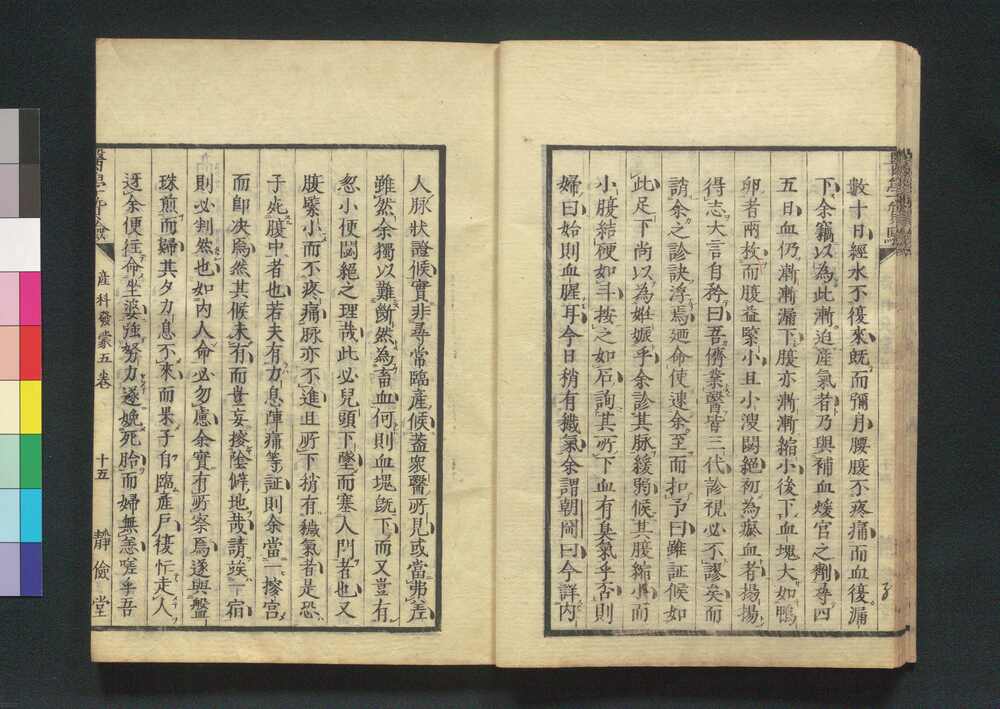 數十日經水不復來既而彌月腰腹不疼痛而血復漏
下余竊以為此漸迫産氣者乃與補血煖宮之劑尋四
五日血仍漸漸漏下腹亦漸漸縮小後下血塊大如鴨
卵者兩枚而腹益緊小且小溲閟絕初為瘀血者揚揚
得志大言自矜曰吾儕業醫皆三代診視必不謬矣而
請余之診訣浮焉廼命使速余至而扣予曰雖証候如
此足下尚以為姙娠乎余診其脉緩弱候其腹縮小而
小腹結硬如斗按之如石詢其所下血有臭氣乎否則
婦曰始則血腥耳今日稍有穢氣余謂朝岡曰今詳内
人脉狀證候實非尋常臨産候蓋衆醫所見或當弗差
雖然余獨以難斷然為畜血何則血塊既下而又豈有
忽小便閟絕之理哉此必兒頭下墜而塞入門者也又
腹緊小而不疼痛脉亦不進且所下稍有穢氣者是恐
子死腹中者也若夫有力息陣痛等証則余當一擦宮
而即決焉然其候未有而豈妄擦陰僻地哉請竢一宿
則必判然也如内人命必勿慮余實有所察焉遂與盤
珠煎而歸其夕力息不來而果子自臨産戶復忙走人
迓余便往命坐婆強努力遂娩死胎而婦無恙嗟乎吾
産科發蒙五卷
十五
靜儉堂